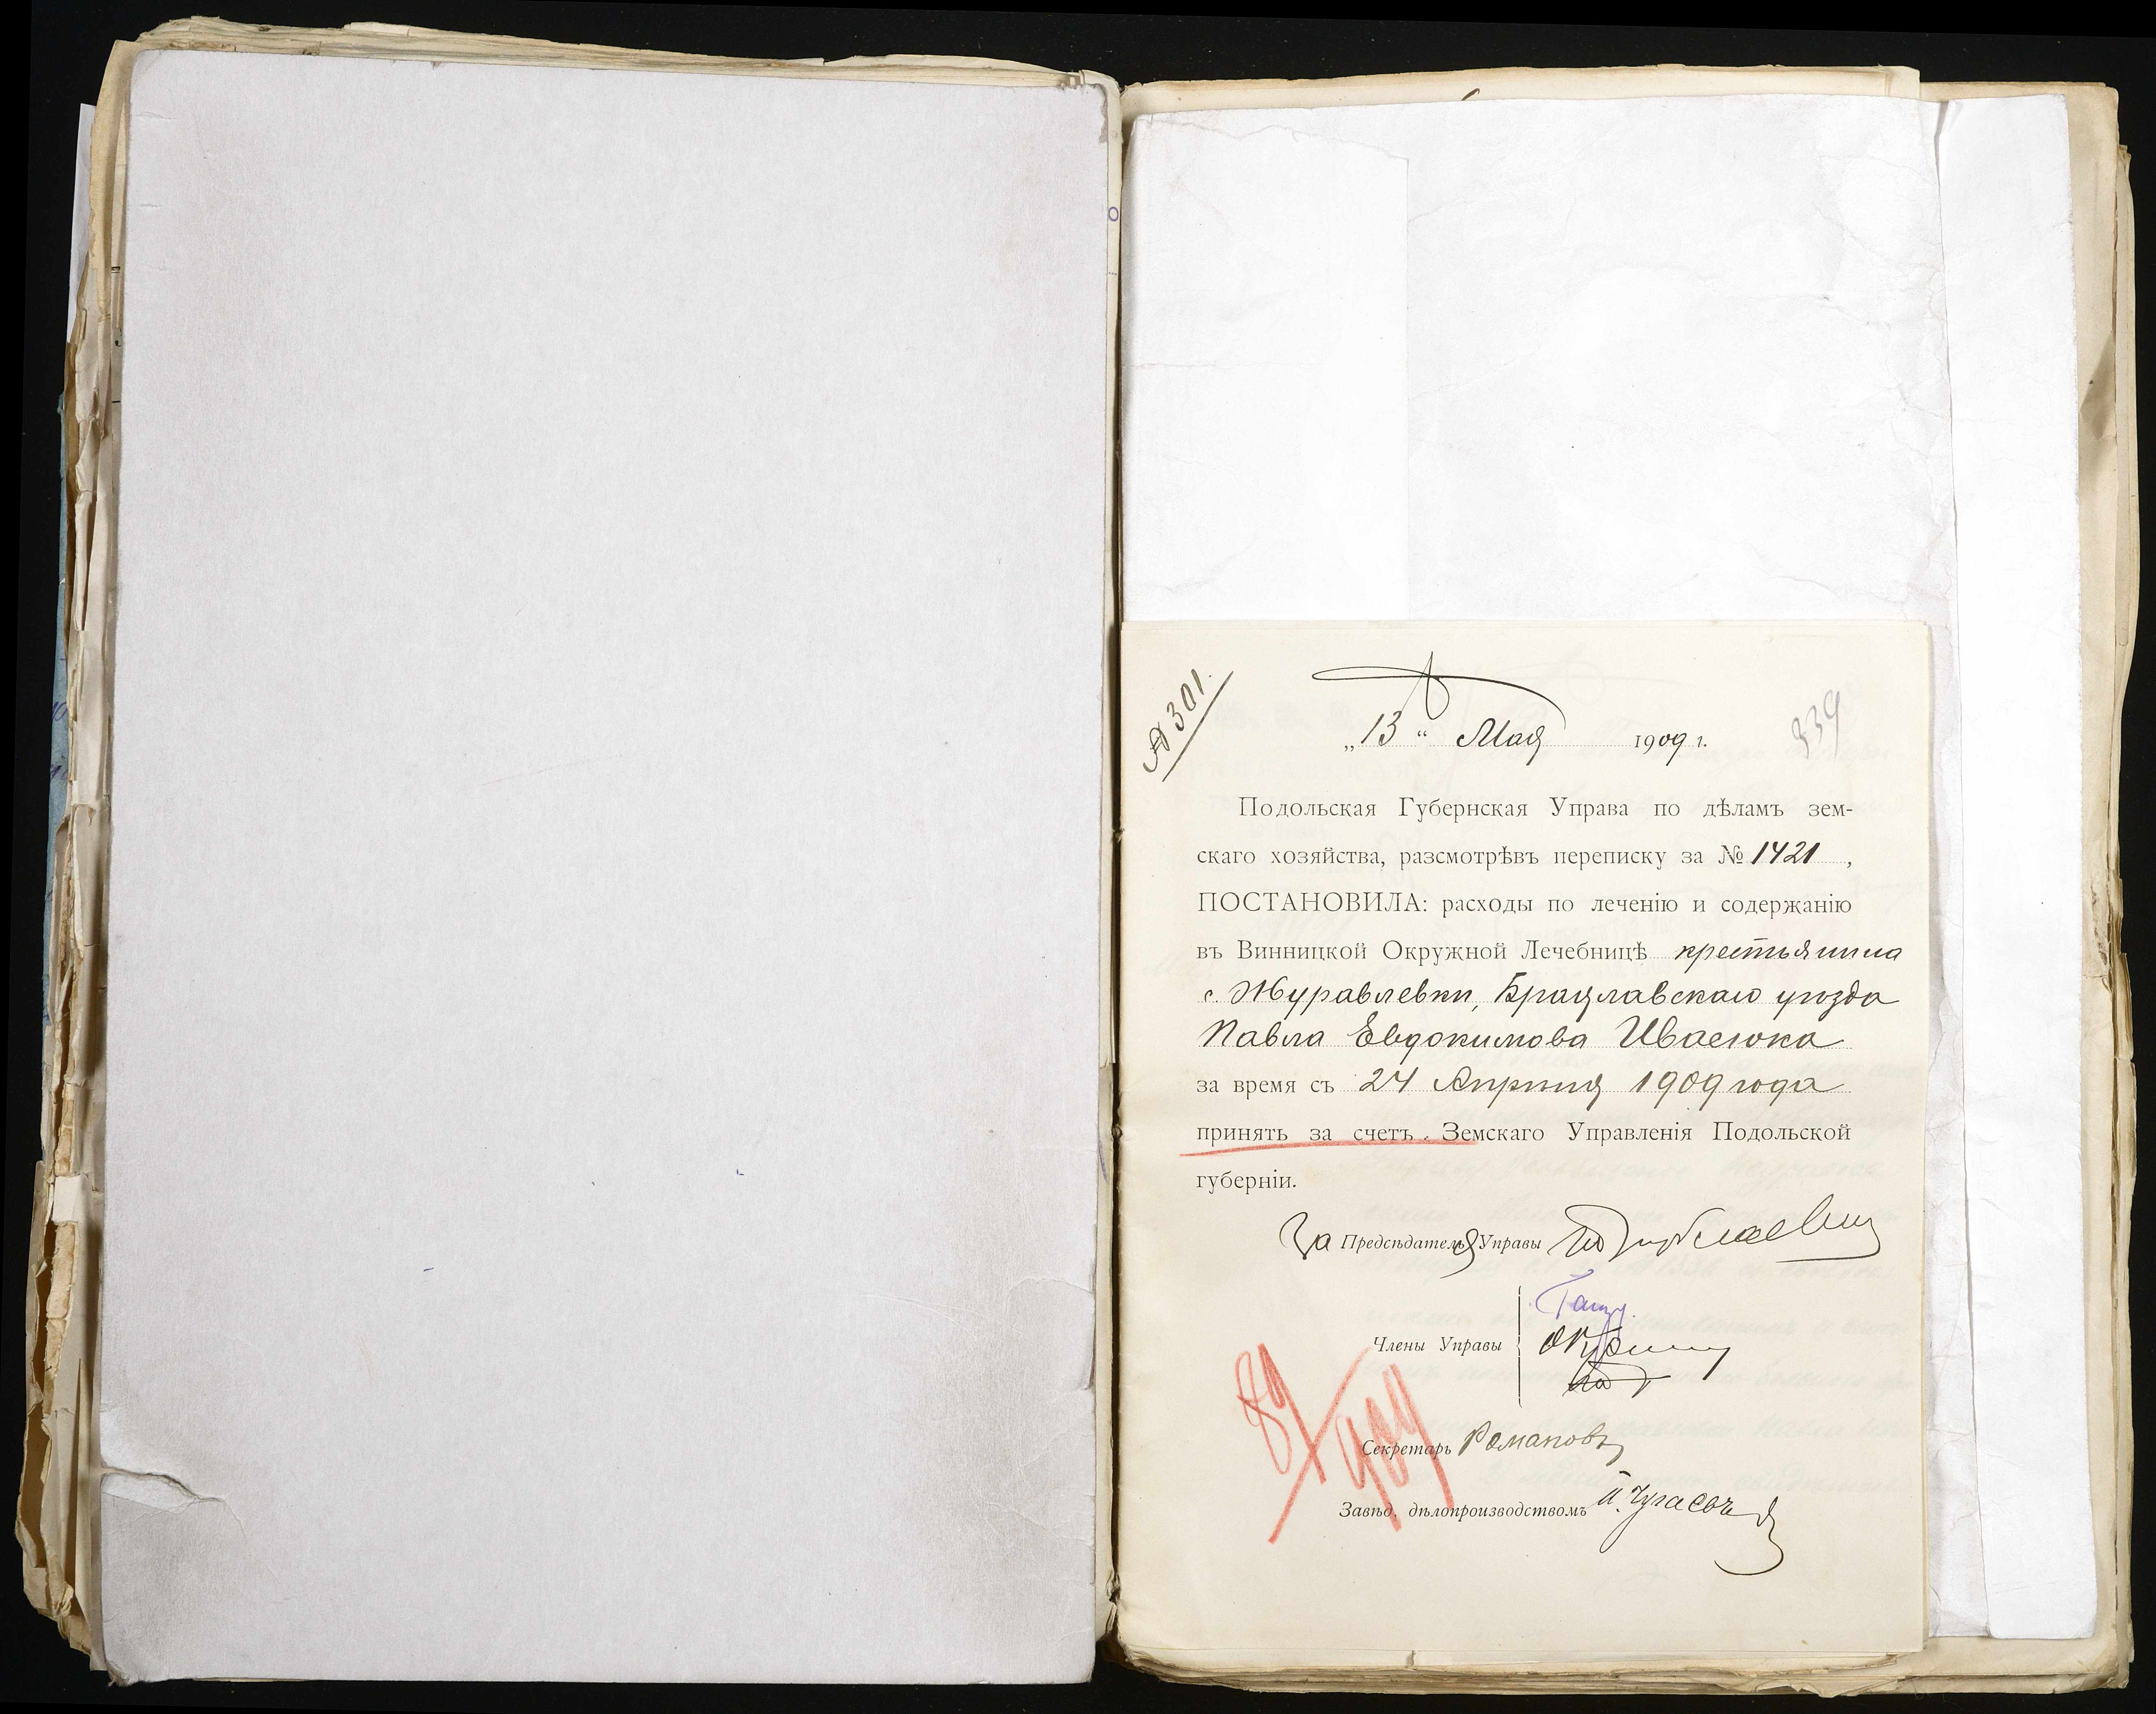 № 301.
339
„13“ Мая 1909 г.
Подольская Губернская Управа по дѣламъ зем-
скаго хозяйства, разсмотрѣвъ переписку за № 1421,
ПОСТАНОВИЛА: расходы по леченію и содержанію
въ Винницкой Окружной Лечебницѣ крестьянина
с. Журавлевки, Брацлавскаго уѣзда
Павла Евдокимова Ивасюка
за время съ 24 Апрѣля 1909 года
принять за счетъ Земскаго Управленія Подольской
губерніи.
За Предсѣдателя Управы
Члены Управы
Секретарь Романовъ
Завѣд. дѣлопроизводствомъ